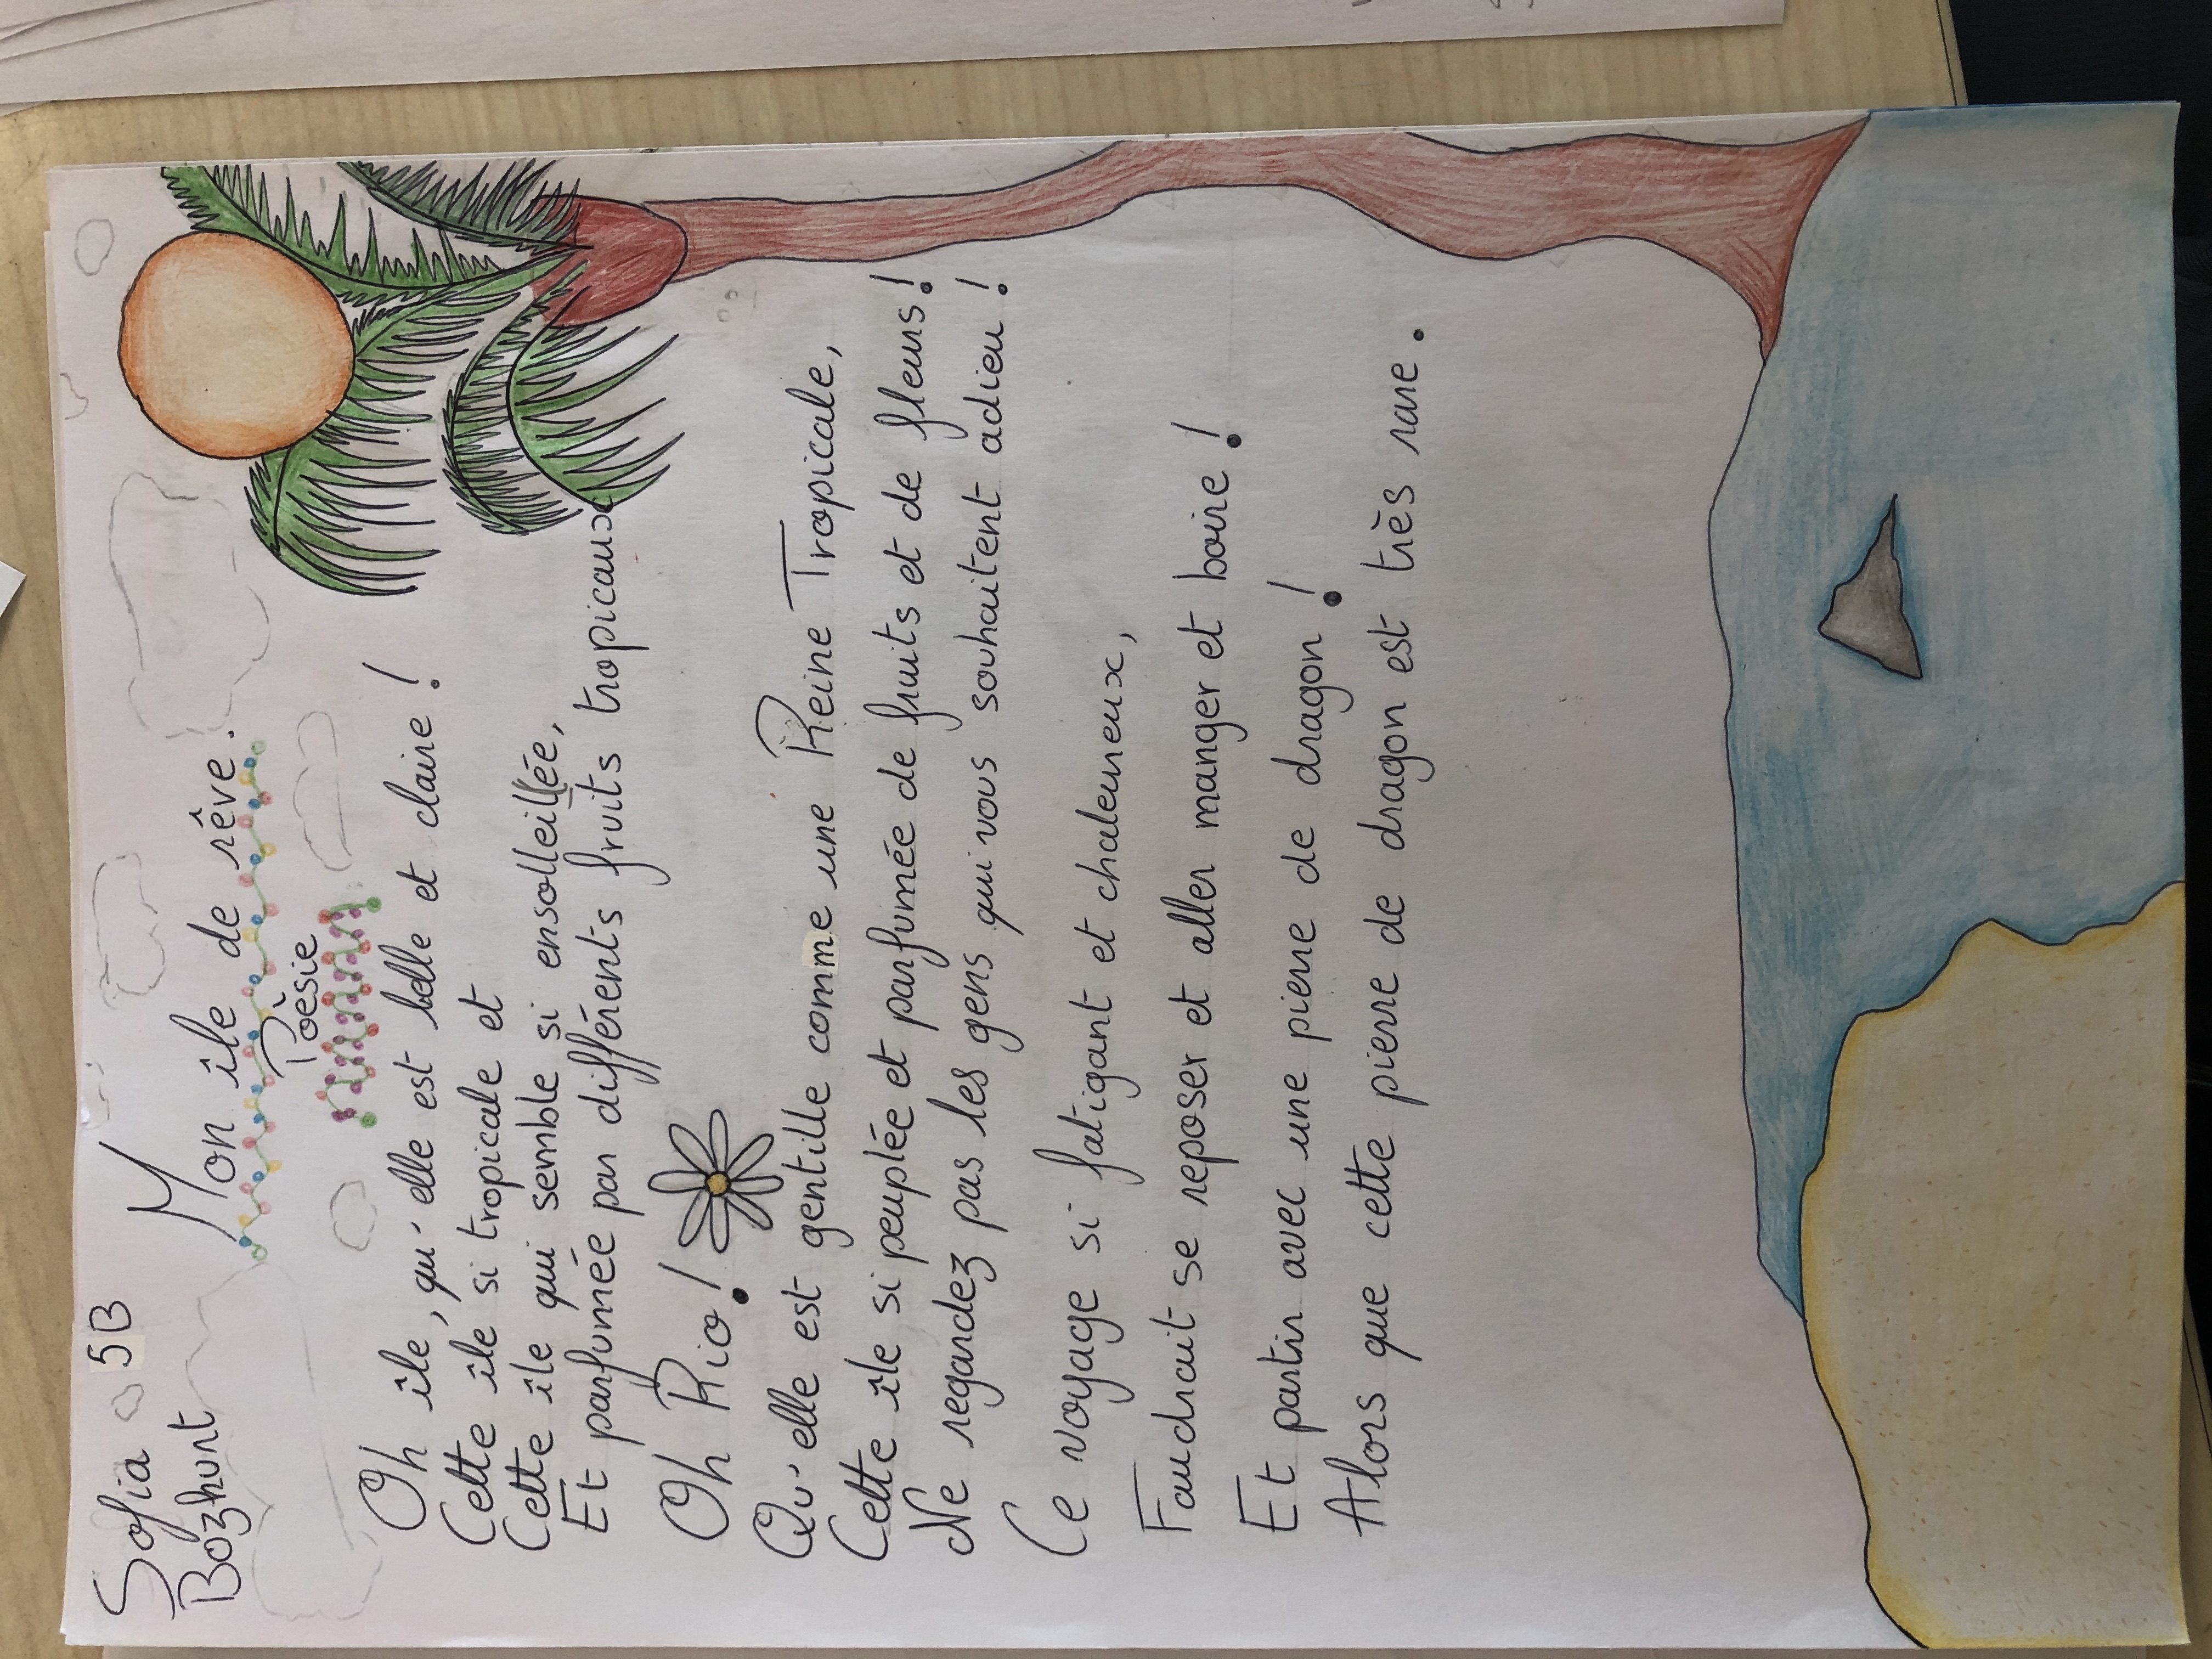 Sofia 5B
Bozhurt
Mon île de rêve.
Poèsie
Oh île, qu'elle est belle et claire !
Cette île si tropicale et
Cette île qui semble si ensolleillée,
Et parfumée par différents fruits tropicaux
Oh Rio !
Qu'elle est gentille comme une Reine Tropicale,
Cette île si peuplée et parfumée de fruits et de fleurs !
Ne regardez pas les gens qui vous souhaitent adieu !
Ce voyage si fatigant et chaleureux,
Faudrait se reposer et aller manger et boire !
Et partir avec une pierre de dragon !
Alors que cette pierre de dragon est très rare.